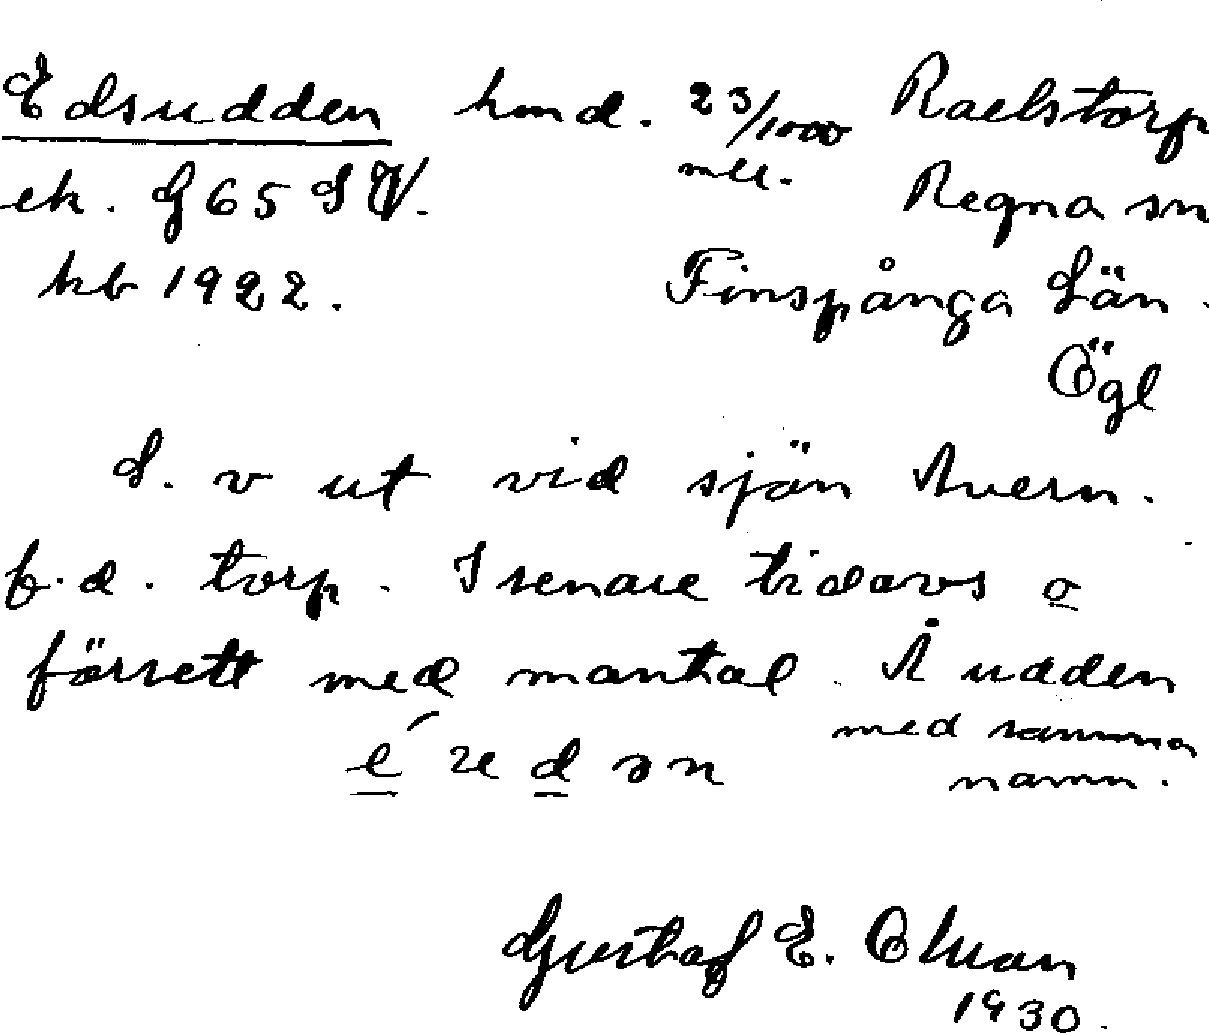 Edsudden hmd. 23/1000 Raelstorp
mtl. Regna sn
ek. G 65 SV.
kb 1922. Finspånga Län.
Ögl
L. v ut vid sjön Avern.
f.d. torp. I senare tid avs o
försett med mantal. Å udden
med samma
namn.
Gustaf E. Ohman
1930.